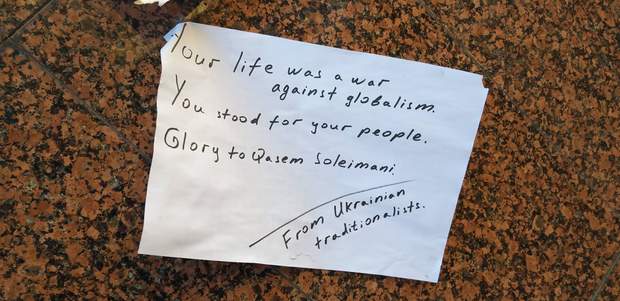 Your life was a war
against globalism.
You stood for your people.
Glory to Qasem Soleimani.
From Ukrainian
traditionalists.